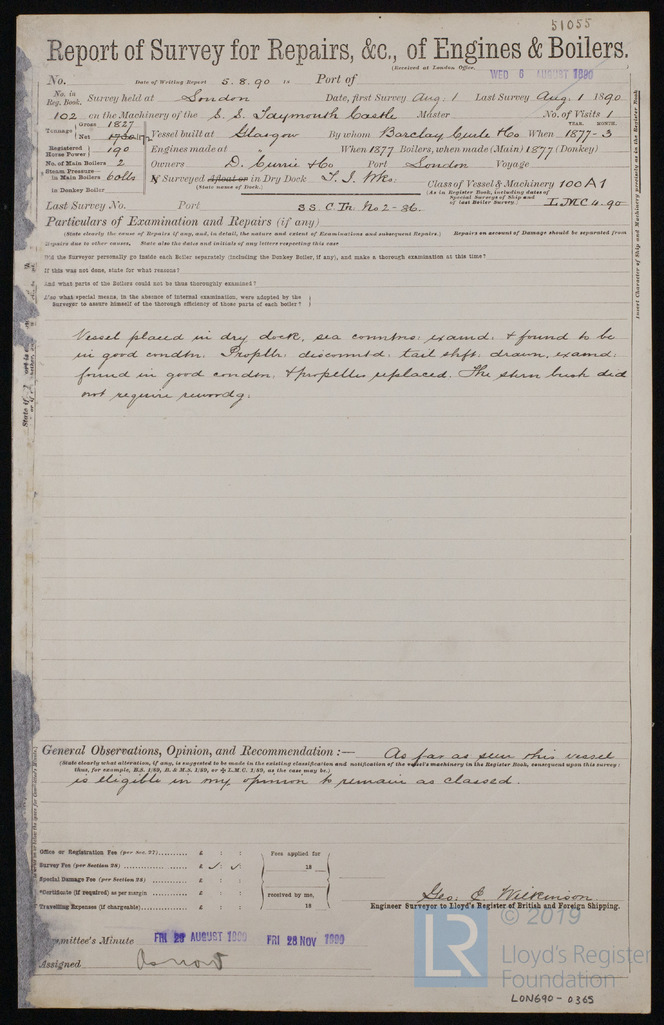 51055
Report of Survey for Repairs, &c., of Engines & Boilers.
(Received at London Office,
No. Date of Writing Report 5.8.90 18 Port of WED 6 AUGUST 1890
No. in Reg. Book. Survey held at London Date, first Survey Aug. 1 Last Survey Aug. 1 1890
102 on the Machinery of the S. S. Taymouth Castle Master No. of Visits 1
YEAR. MONTH.
Tonnage Gross 1827
Net 1172 Vessel built at Glasgow By whom Barclay Curle & Co When 1877-3
Registered Horse Power 190 Engines made at " When 1877 Boilers, when made (Main) 1877 (Donkey)
No. of Main Boilers 2 Owners D. Currie & Co Port London Voyage
Steam Pressure in Main Boilers 60lbs Surveyed Afloat or in Dry Dock T. I. Wks. Class of Vessel & Machinery 100 A1
in Donkey Boiler (State name of Dock.) (As in Register Book, including dates of Special Surveys of Ship and of last Boiler Survey.) L.M.C 4.90
Last Survey No. Port SS. C. Tr. No 2-86.
Particulars of Examination and Repairs (if any)
(State clearly the cause of Repairs if any, and, in detail, the nature and extent of Examinations and subsequent Repairs.) Repairs on account of Damage should be separated from
Repairs due to other causes, State also the dates and initials of any letters respecting this case
Did the Surveyor personally go inside each Boiler separately (including the Donkey Boiler, if any), and make a thorough examination at this time?
If this was not done, state for what reasons?
And what parts of the Boilers could not be thus thoroughly examined?
Also what special means, in the absence of internal examination, were adopted by the
Surveyor to assure himself of the thorough efficiency of those parts of each boiler?
Insert Character of Ship and Machinery precisely as in the Register Book
Vessel placed in dry dock, sea conntns: examd: & found to be
in good condtn. Propllr: disconntd: tail shft: drawn, examd:
found in good condtn: & propeller replaced. The stern bush did
not require rewoodg:
General Observations, Opinion, and Recommendation :— As far as seen this vessel
(State clearly what alteration, if any, is suggested to be made in the existing classification and notification of the vessel's machinery in the Register Book, consequent upon this survey:
thus, for example, B.S. 1/89, B. & M.S. 1/89, or L.M.C. 1/89, as the case may be.)
is eligible in my opinion to remain as classed.
Office or Registration Fee (per Sec. 27) £ : : Fees applied for
Survey Fee (per Section 28) £ : : 18
Special Damage Fee (per Section 28) £ : :
*Certificate (if required) as per margin £ : : received by me,
Travelling Expenses (if chargeable) £ : : 18
Geo. C. Wilkinson
Engineer Surveyor to Lloyd's Register of British and Foreign Shipping.
Committee's Minute FRI 29 AUGUST 1890 FRI 28 NOV 1890
Assigned As now
LR
© 2019
Lloyd's Register
Foundation
LON690-0365